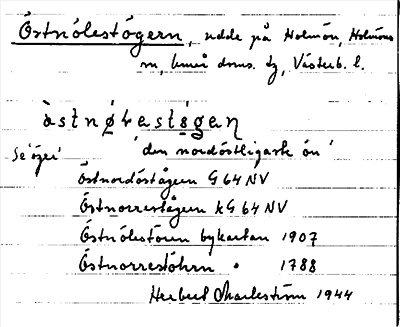 Östnölestögern, udde på Holmön, Holmöns
sn, Umeå doms. tg, Västerb. l.
àstnø̀ɫestø̀gaɳ
'den nordöstligaste ön'
Östnordöstågern G 64 NV
Östnorrestågern kG 64 NV
Östnölestören bykartan 1907
Östnorrestöhrn " 1788
Herbert Markström 1944